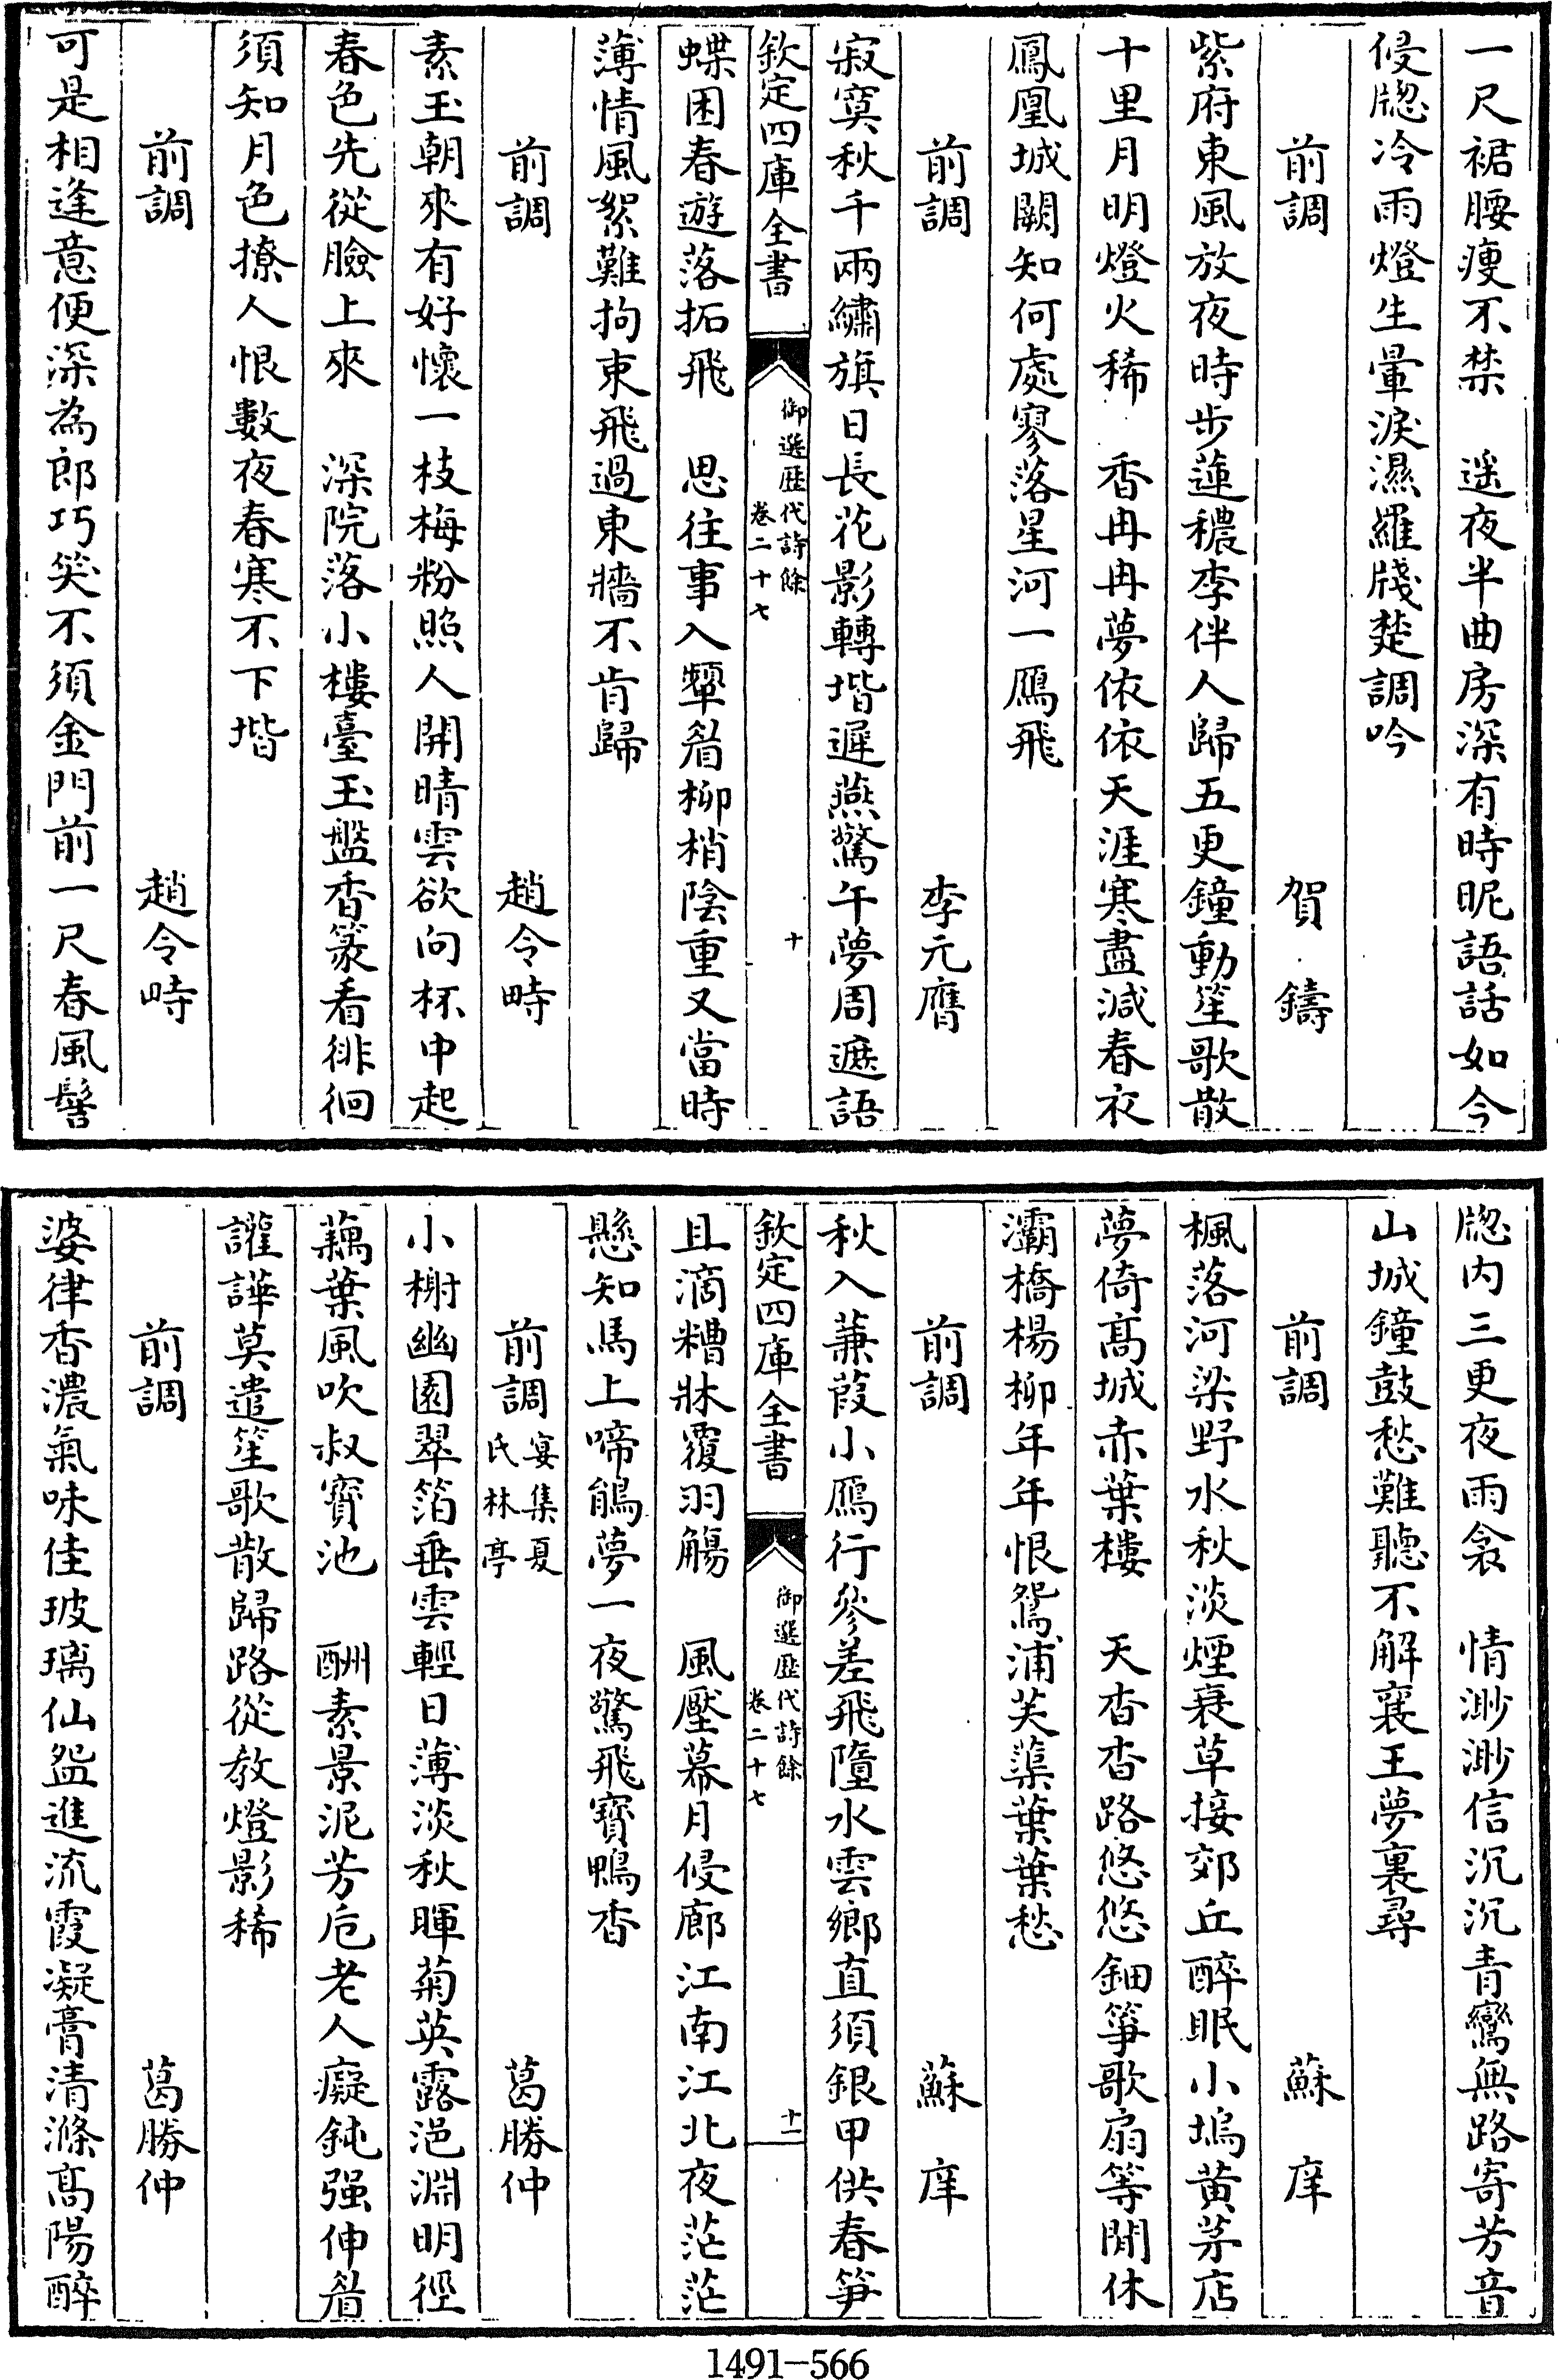 一尺裙腰瘦不禁　遥夜半曲房深有時昵語話如今
侵牎冷雨燈生暈淚濕羅牋楚調吟
前調　賀鑄
紫府東風放夜時步蓮穠李伴人歸五更鐘動笙歌散
十里月明燈火稀　香冉冉夢依依天涯寒盡減春衣
鳳凰城闕知何處寥落星河一鴈飛
前調　李元膺
寂寞秋千兩繡旗日長花影轉堦遲燕驚午夢周遮語
欽定四庫全書
御選歷代詩餘
卷二十七
十
蝶困春遊落拓飛　思往事入顰眉柳梢陰重又當時
薄情風絮難拘束飛過東牆不肯歸
前調　趙令畤
素玉朝來有好懷一枝梅粉照人開晴雲欲向杯中起
春色先從臉上來　深院落小樓臺玉盤香篆看徘徊
須知月色撩人恨數夜春寒不下堦
前調　趙令畤
可是相逢意便深為郎巧笑不須金門前一尺春風髻
牎内三更夜雨衾　情渺渺信沉沉青鸞無路寄芳音
山城鐘鼓愁難聽不解襄王夢裏尋
前調　蘇庠
楓落河梁野水秋淡煙衰草接郊丘醉眠小塢黄茅店
夢倚髙城赤葉樓　天杳杳路悠悠鈿箏歌扇等閒休
灞橋楊柳年年恨鴛浦芙蕖葉葉愁
前調　蘇庠
秋入蒹葭小鴈行參差飛墮水雲鄉直須銀甲供春筍
欽定四庫全書
御選歷代詩餘
卷二十七
十一
且滴糟牀覆羽觴　風壓幕月侵廊江南江北夜茫茫
懸知馬上啼鵑夢一夜驚飛寶鴨香
前調宴集夏氏林亭　葛勝仲
小榭幽園翠箔垂雲輕日薄淡秋暉菊英露浥淵明徑
藕葉風吹叔寶池　酬素景泥芳巵老人癡鈍强伸眉
讙譁莫遣笙歌散歸路從教燈影稀
前調　葛勝仲
婆律香濃氣味佳玻璃仙盌進流霞凝膏清滌髙陽醉
1491—566